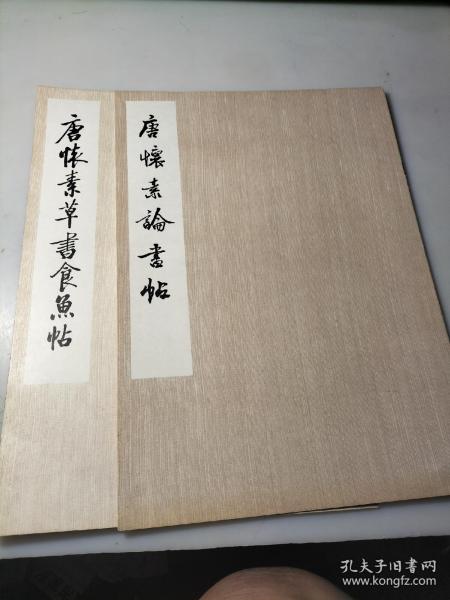 唐懷素草書食魚帖
唐懷素論書帖
孔夫子旧书网
www.kongfz.com